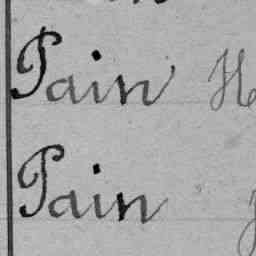 Pain H
Pain